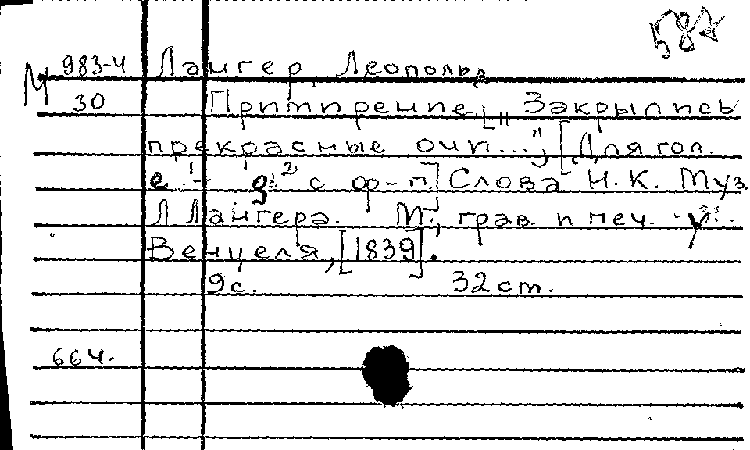 587
М 983-4 Лангер, Леопольд
30 Примирение ["Закрылись
прекрасные очи..."], [Для гол.
e¹ - g² с ф-п] Слова Н. К. Муз.
Л Лангера. М., грав и печ. у
Венцеля, [1839].
9с. 32 ст.
664.